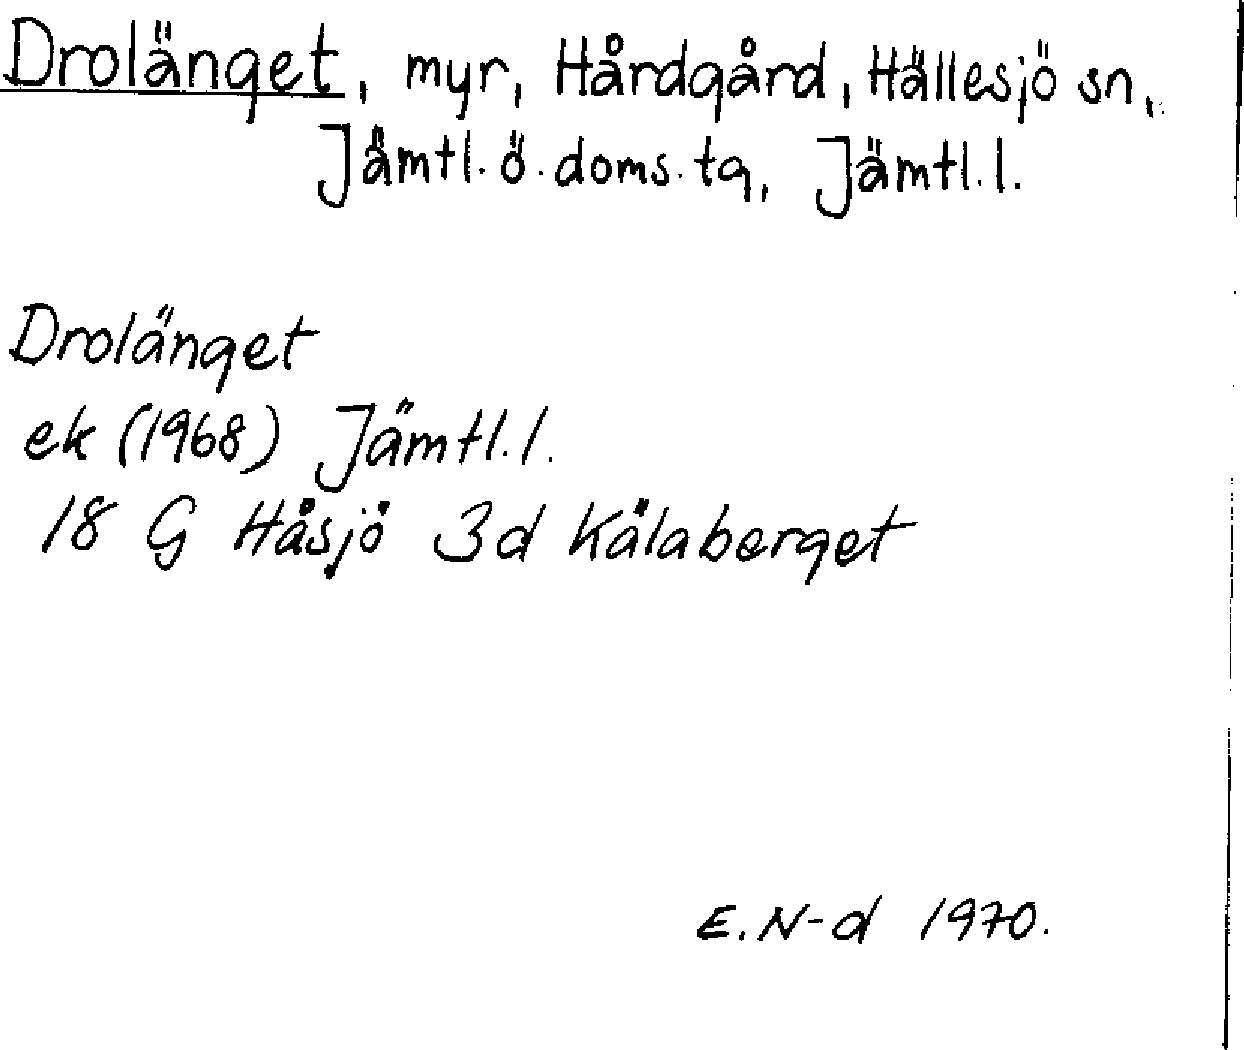 Drolänget, myr, Hårdgård, Hällesjö sn,
Jämtl. ö. doms. tg, Jämtl. l.
Drolänget
ek (1968) Jämtl. l.
18 G Håsjö 3d Kålaberget
E. N-d 1970.